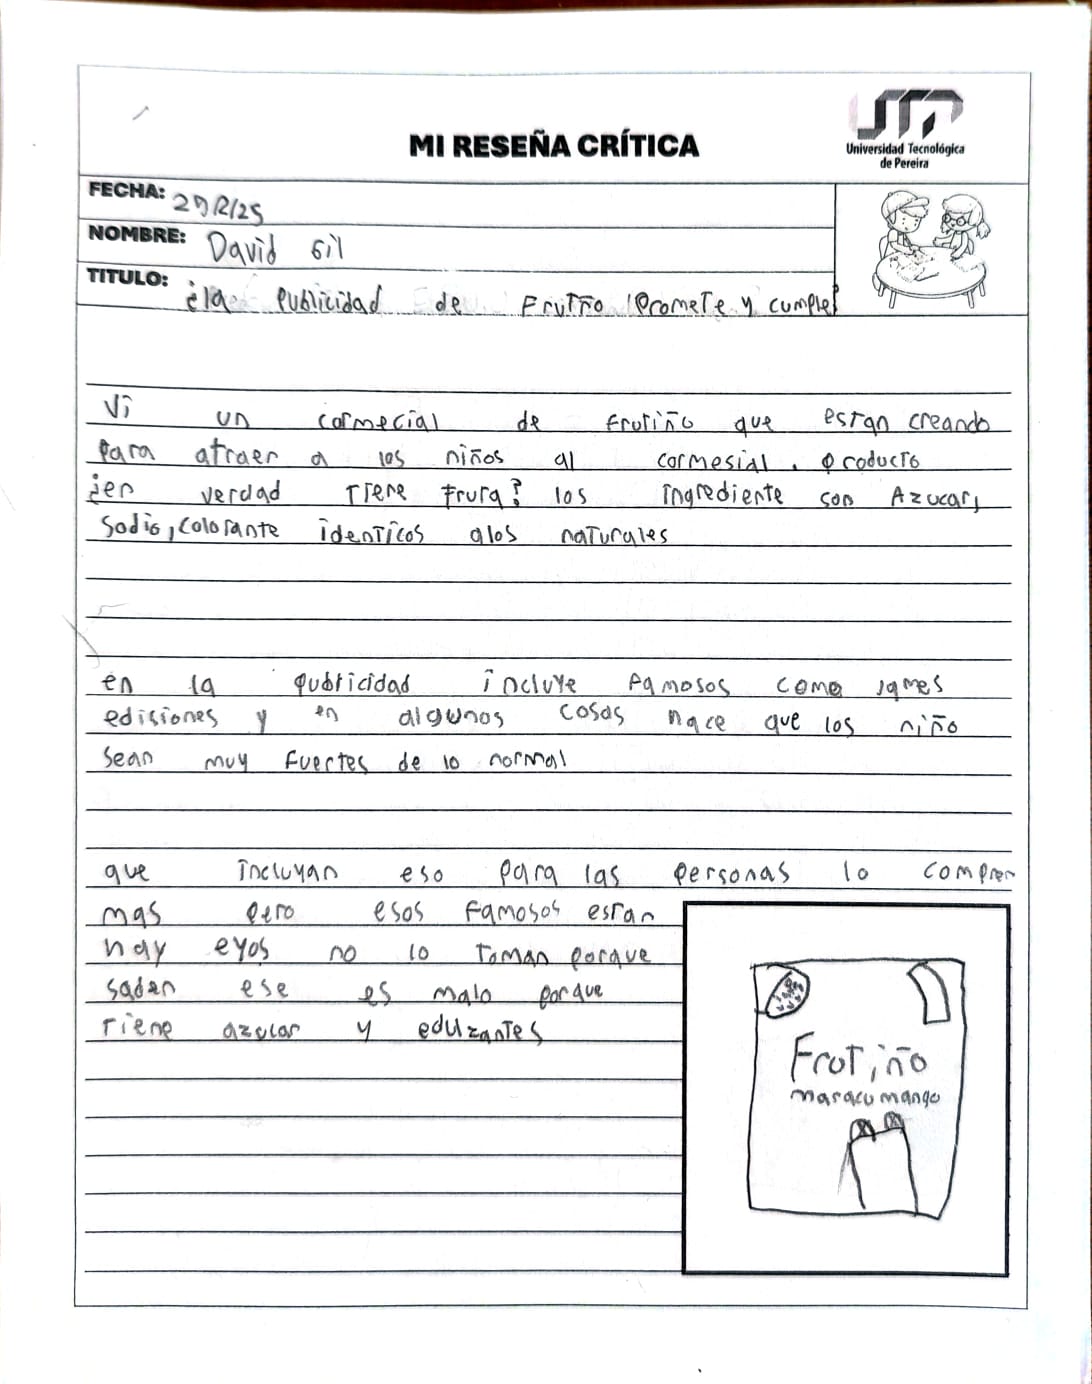 MI RESEÑA CRÍTICA
Universidad Tecnológica
de Pereira
FECHA:
NOMBRE: David Gil
TITULO: ¿la publicidad de Frutiño promete y cumple?
Vi un cormecial de frutiño que estan creando
para atraer a los niños al cormesial. producto
¿en verdad tiene fruta? los ingrediente son Azucar,
Sodio, colorante identicos alos naturales
en la publicidad incluye famosos como james
edisiones y en algunos cosas hace que los niño
sean muy fuertes de lo normal
que incluyan eso para las personas lo compren
mas pero esos famosos estan
hay eyos no lo toman porque
saben ese es malo porque
tiene azucar y edulzantes
Frutiño
maracumango